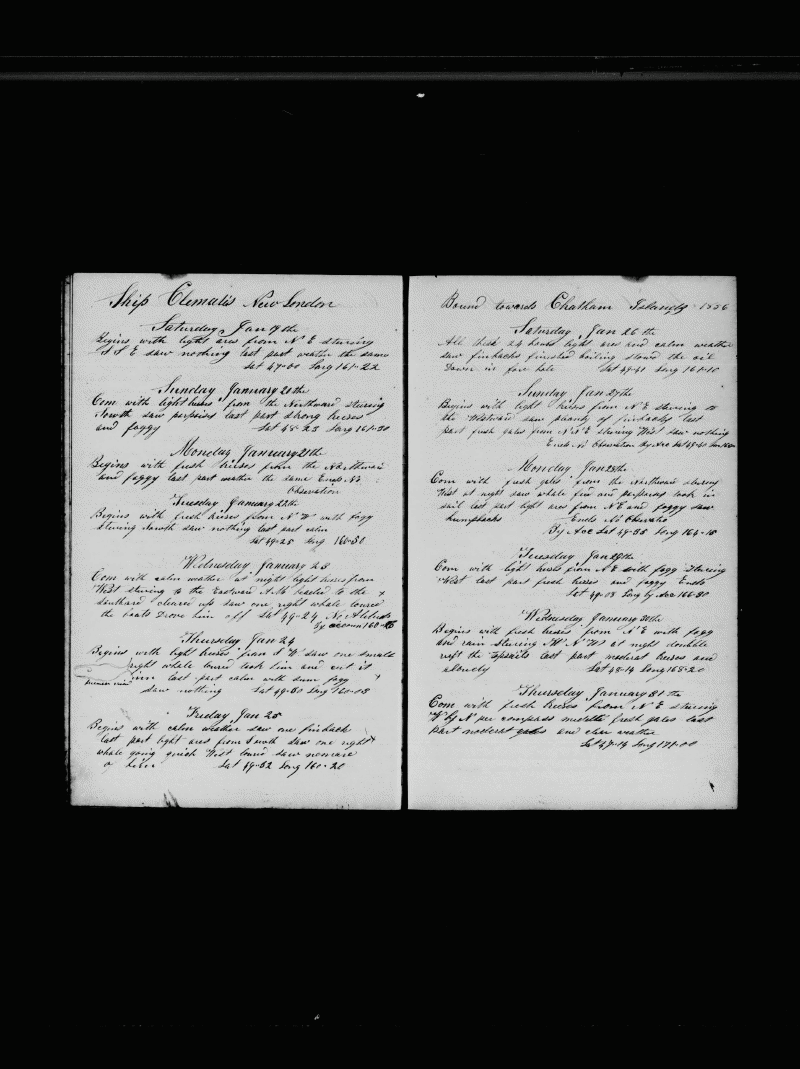 Ship Clematis New London
Saturday Jan 19th
Begins with light ares from N E stearing
S S E saw nothing last part weather the same
Lat 47-00 Long 161-22
Sunday January 21th
Com with light brieses from the Northward stearing
South saw porpoises last part strong brieses
and foggy Lat 48-23 Long 161-30
Monday January 21th
Begins with fresh brieses from the Northward
and foggy last part weather the same Ends No
Observation
Tuesday January 22th
Begins with fresh brieses from N W with fogg
stearing North saw nothing last part calm
Lat 49-25 Long 160-30
Wednesday January 23
Com with calm weather at night light brieses from
West stearing to the Eastward A M to the
Southard cleared up saw one right whale lowred
the boats Drove him off Lat 49-24 No
By account 162-15
Thursday Jan 24
Begins with light brieses from S W saw one small
right whale lowred took him and cut it
in last part calm with sum fogg
saw nothing Lat 49-30 Long 160-13
Friday Jan 25
Begins with calm weather saw one finback
last part light ares from South saw one right
whale going quick West lowrd saw no more
of him Lat 49-32 Long 160-20
Bound towards Chatham Islands 1856
Saturday Jan 26th
All these 24 hours light ares and calm weather
saw finbacks finished boiling stowd the oil
Down in fore hole Lat 49-41 Long 161-10
Sunday Jan 27th
Begins with light brieses from N E stearing to
the Westward saw plenty of finbacks last
part fresh gales from N N E stearing West saw nothing
Ends No Observation By Acc Lat 49-40
Monday Jan 28th
Com with fresh gales from the Northward stearing
West at night saw whale fin and porpoises took in
sail last part light ares from N E and foggy saw
humpbacks Ends No Observatio
By Acc Lat 49-35 Long 164-15
Tuesday Jan 29th
Com with light brieses from N E with fogg stearing
West last part fresh brieses and foggy Ends
Lat 49-03 Long by Acc 166-30
Wednesday January 30th
Begins with fresh brieses from N E with fogg
and rain stearing W N W at night double
reeft the topsails last part moderat brieses and
cloudy Lat 48-14 Long 168-20
Thursday January 31th
Com with fresh brieses from N E stearing
W by N per compass middle fresh gales last
part moderat gales and clear weather
Lat 47-14 Long 171-00